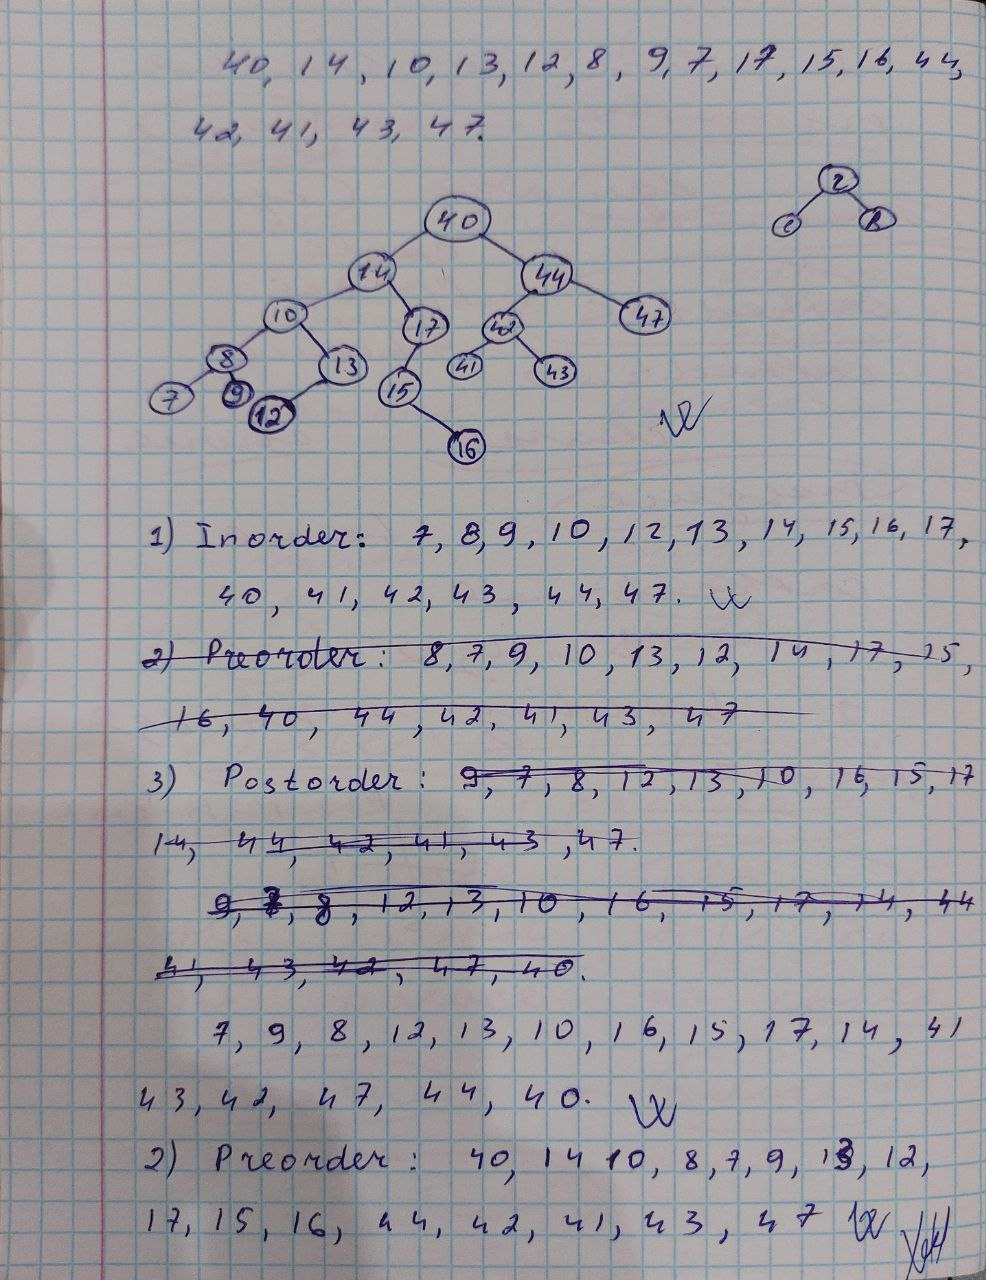 40, 14, 10, 13, 12, 8, 9, 7, 17, 15, 16, 44,
42, 41, 43, 47.
2
40
14
44
10
17
42
47
8
13
41
43
7
9
12
15
16
1) Inorder: 7, 8, 9, 10, 12, 13, 14, 15, 16, 17,
40, 41, 42, 43, 44, 47.
2) Preorder: 8, 7, 9, 10, 13, 12, 14, 17, 15,
16, 40, 44, 42, 41, 43, 47
3) Postorder: 9, 7, 8, 12, 13, 10, 16, 15, 17
14, 44, 42, 41, 43, 47.
9, 7, 8, 12, 13, 10, 16, 15, 17, 14, 44
41, 43, 42, 47, 40.
7, 9, 8, 12, 13, 10, 16, 15, 17, 14, 41
43, 42, 47, 44, 40.
2) Preorder: 40, 14 10, 8, 7, 9, 13, 12,
17, 15, 16, 44, 42, 41, 43, 47